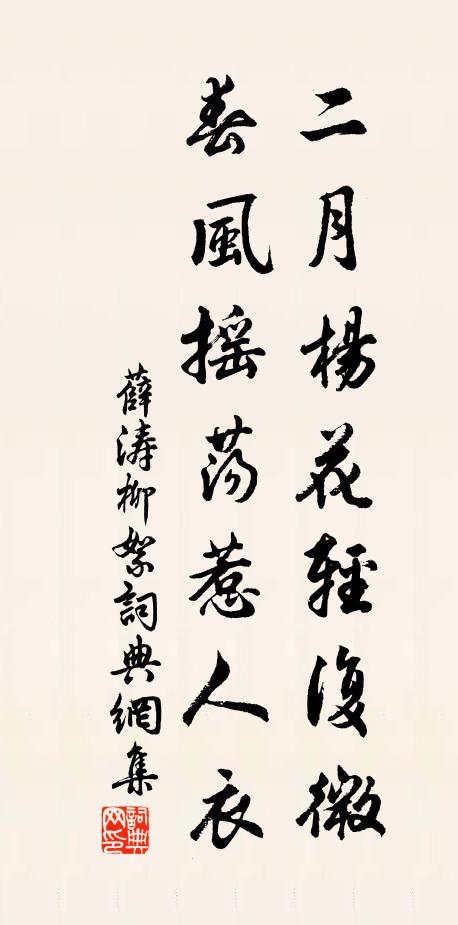 二月楊花輕復微
春風摇蕩惹人衣
薛濤柳絮詞典網集
詞典網印